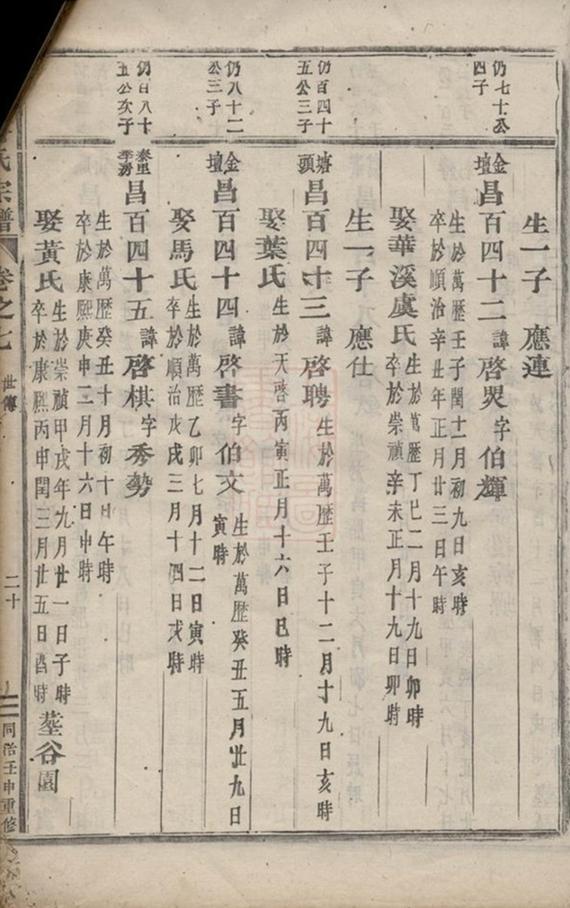 生一子 應連
仍七十公
四子
金壇 昌百四十二 諱 啓㷠 字 伯輝
生於萬歷壬子閏十一月初九日亥時
卒於順治辛丑年正月廿三日午時
娶華溪虞氏 生於萬歷丁巳二月十九日卯時
卒於崇禎辛未正月十九日卯時
生一子 應仕
仍百四十
五公三子
塘頭 昌百四十三 諱 啓聘 生於萬歷壬子十二月十九日亥時
娶葉氏 生於天啓丙寅正月十六日巳時
仍八十二
公三子
金壇 昌百四十四 諱 啓書 字 伯文 生於萬歷癸丑五月廿九日
寅時
娶馬氏 生於萬歷乙卯七月十二日寅時
卒於順治戊戌三月十四日戌時
仍百八十
五公次子
秦里
季房 昌百四十五 諱 啓棋 字 秀勢
生於萬歷癸丑十月初十日午時
卒於康熙庚申二月十六日申時
娶黃氏 生於崇禎甲戌年九月廿一日子時
卒於康熙丙申閏三月廿五日酉時 塟谷園
氏宗譜 卷之七 世傳 二十 同治壬申重修